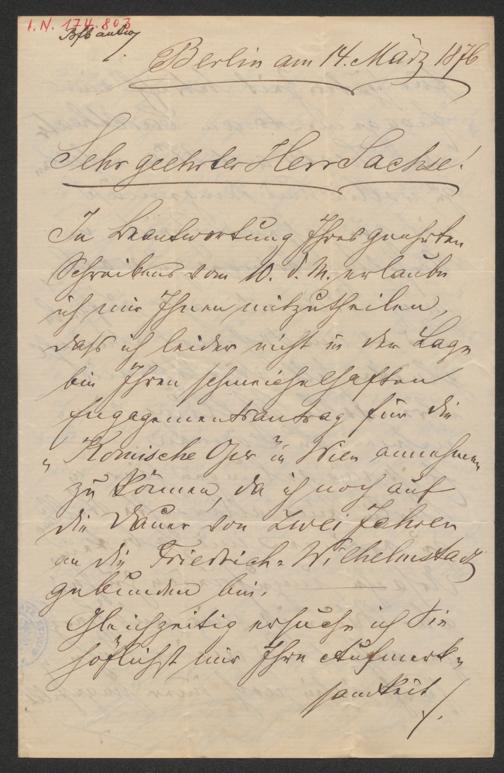 I.N. 174.803
Bfb antw.
Berlin am 14. März 1876
Sehr geehrter Herr Sachse!
In Beantwortung Ihres geehrten
Schreibens vom 10. d. M. erlaube
ich mir Ihnen mitzutheilen,
daß ich leider nicht in der Lage
bin Ihren schmeichelhaften
Engagementsantrag für die
„Komische Oper" in Wien annehmen
zu können, da ich noch auf
die Dauer von zwei Jahren
an die Friedrich-Wilhelmstadt
gebunden bin.
Gleichzeitig ersuche ich Sie
höflichst mir Ihre Aufmerk-
samkeit